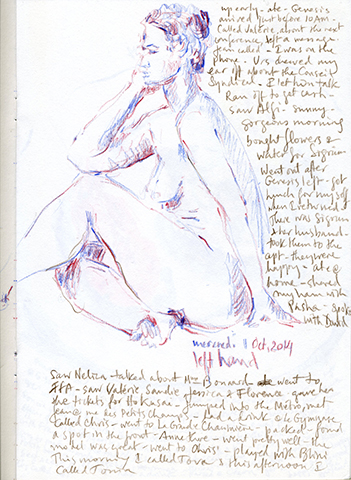 up early - ate - Genesis
arrived just before 10 AM -
Called Valérie about the next
conference, left a message
Jean called - I was on the
phone - Urs chewed my
ear off about the Conseil
Syndical - I let him talk
Ran off to get cash -
saw Alfi - sunny -
gorgeous morning
bought flowers &
water for Sigrun
Went out after
Genesis left - got
lunch for myself
when I returned
There was Sigrun
& her husband -
took them to the
apt - they were
happy - ate @
home - shared
my ham with
Pasha - spoke
with David
mercredi 1 Oct, 2014
left hand
Saw Nelica - talked about Mme Bonnard - went to
- saw Valérie Sandie Jessica & Florence - gave her
the tickets for Hokusai - jumped into the Metro, met
Jean @ me les Petits Champs - had a drink @ le Gymnase
Called Chris - went to La Grande Chaumière - packed - found
a spot in the front - Anne Kure - went pretty well - the
model was great - went to Chris' - played with Blini
This morning I called Tova & this afternoon I
called Tonia